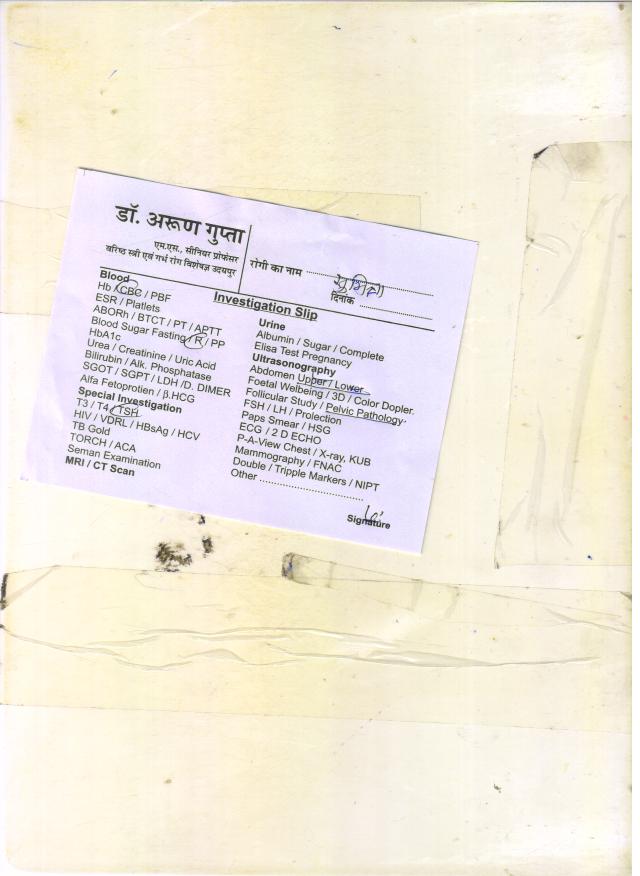 डॉ. अरूण गुप्ता
एम.एस., सीनियर प्रोफेसर
वरिष्ठ स्त्री एवं गर्भ रोग विशेषज्ञ उदयपुर
रोगी का नाम
दिनांक
Investigation Slip
Blood
Hb / CBC / PBF
ESR / Platelets
ABORh / BTCT / PT / APTT
Blood Sugar Fasting / R / PP
HbA1c
Urea / Creatinine / Uric Acid
Bilirubin / Alk. Phosphatase
SGOT / SGPT / LDH /D. DIMER
Alfa Fetoprotien / β.HCG
Special Investigation
T3 / T4 / TSH
HIV / VDRL / HBsAg / HCV
TB Gold
TORCH / ACA
Seman Examination
MRI / CT Scan
Urine
Albumin / Sugar / Complete
Elisa Test Pregnancy
Ultrasonography
Abdomen Upper / Lower
Foetal Welbeing / 3D / Color Dopler.
Follicular Study / Pelvic Pathology.
FSH / LH / Prolection
Paps Smear / HSG
ECG / 2 D ECHO
P-A-View Chest / X-ray, KUB
Mammography / FNAC
Double / Tripple Markers / NIPT
Other ..............................
Signature